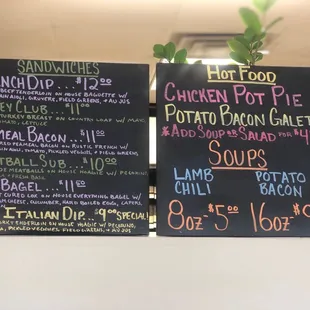 SANDWICHES
NCH DIP... $12.00
BEEF TENDERLOIN ON HOUSE BAGUETTE W/
AIOLI, GRUYERE, FIELD GREENS, + AU JUS
EY CLUB... $11.00
TURKEY BREAST ON COUNTRY LOAF W/
TOMATO, LETTUCE
MEAL BACON... $11.00
PEAMEAL BACON ON RUSTIC FRENCH W/
AIOLI, TOMATO, PICKLED VEGGIES + FIELD GREENS
TBALL SUB... $10.00
MEATBALLS ON HOUSE HOAGIE W/
FRESH BASIL
BAGEL... $11.50
CURED LOX ON HOUSE EVERYTHING BAGEL W/
CHEESE, CUCUMBER, HARD BOILED EGG, CAPERS
ITALIAN DIP... $9.00 SPECIAL!
TENDERLOIN ON HOUSE HOAGIE W/ PROVOLONE,
PICKLED VEGGIES, FIELD GREENS, + AU JUS
HOT FOOD
CHICKEN POT PIE
POTATO BACON GALET
& ADD SOUP OR SALAD FOR $4
SOUPS
LAMB CHILI
POTATO BACON
8oz-$5.00 16oz-$9